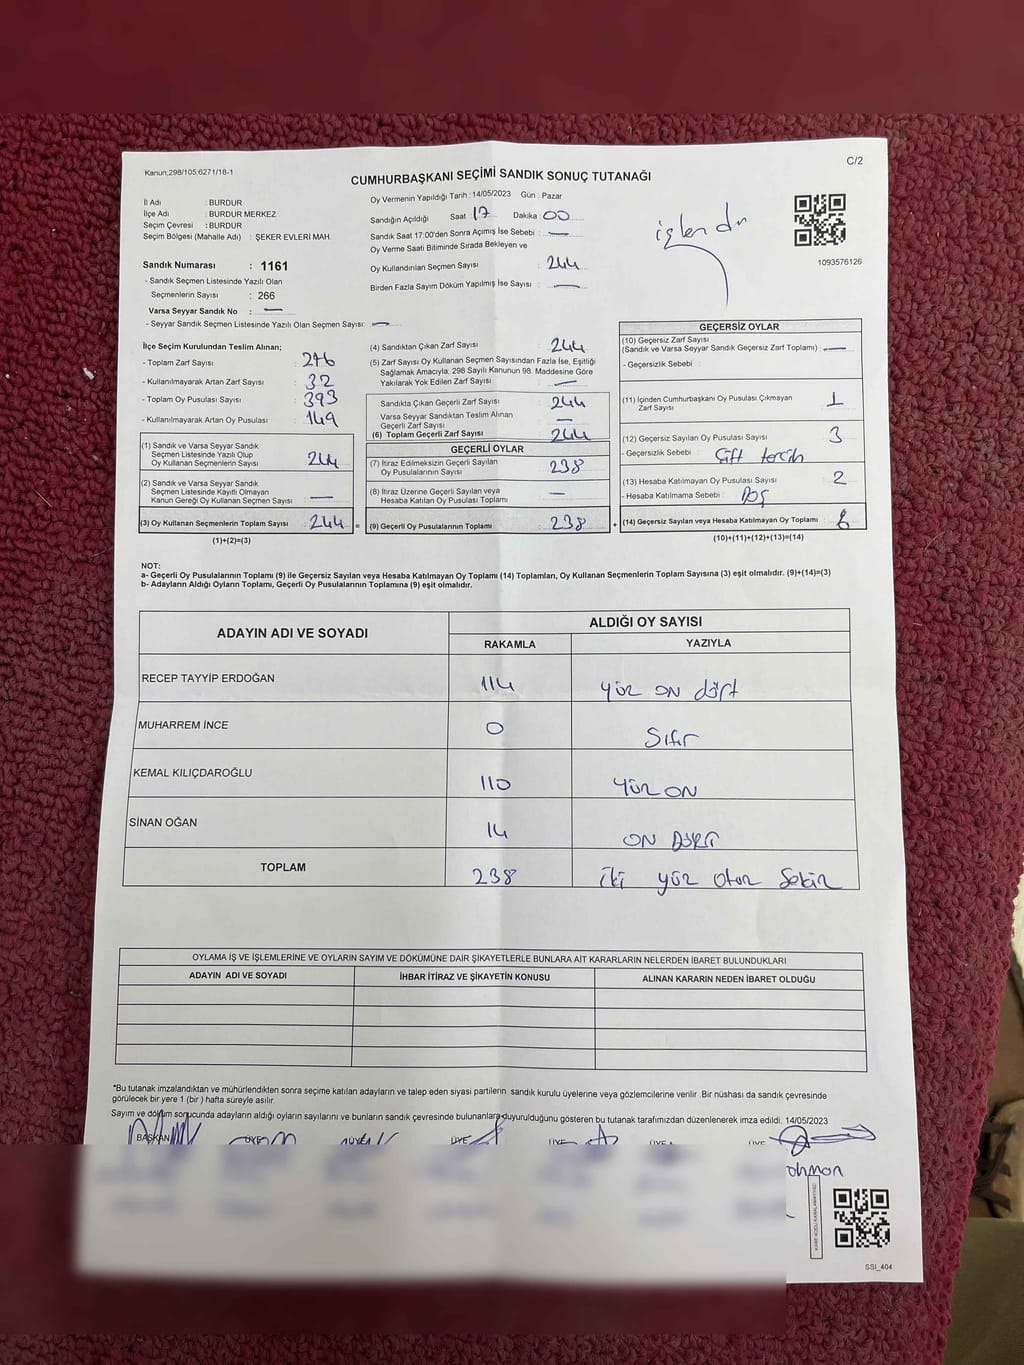 Kanun;298/105,6271/18-1
C/2
CUMHURBAŞKANI SEÇİMİ SANDIK SONUÇ TUTANAĞI
İl Adı : BURDUR
İlçe Adı : BURDUR MERKEZ
Seçim Çevresi : BURDUR
Seçim Bölgesi (Mahalle Adı) : ŞEKER EVLERİ MAH.
Sandık Numarası : 1161
- Sandık Seçmen Listesinde Yazılı Olan
Seçmenlerin Sayısı : 266
Varsa Seyyar Sandık No : —
- Seyyar Sandık Seçmen Listesinde Yazılı Olan Seçmen Sayısı: —
Oy Vermenin Yapıldığı Tarih : 14/05/2023 Gün : Pazar
Sandığın Açıldığı Saat 17 Dakika : 00
Sandık Saat 17:00'den Sonra Açılmış İse Sebebi : —
Oy Verme Saati Bitiminde Sırada Bekleyen ve
Oy Kullandırılan Seçmen Sayısı : 244
Birden Fazla Sayım Döküm Yapılmış İse Sayısı : —
işlendi
1093576126
İlçe Seçim Kurulundan Teslim Alınan;
- Toplam Zarf Sayısı : 276
- Kullanılmayarak Artan Zarf Sayısı : 32
- Toplam Oy Pusulası Sayısı : 393
- Kullanılmayarak Artan Oy Pusulası : 149
(1) Sandık ve Varsa Seyyar Sandık
Seçmen Listesinde Yazılı Olup
Oy Kullanan Seçmenlerin Sayısı : 244
(2) Sandık ve Varsa Seyyar Sandık
Seçmen Listesinde Kayıtlı Olmayan
Kanun Gereği Oy Kullanan Seçmen Sayısı : —
(3) Oy Kullanan Seçmenlerin Toplam Sayısı : 244 =
(1)+(2)=(3)
(4) Sandıktan Çıkan Zarf Sayısı : 244
(5) Zarf Sayısı Oy Kullanan Seçmen Sayısından Fazla İse, Eşitliği
Sağlamak Amacıyla, 298 Sayılı Kanunun 98. Maddesine Göre
Yakılarak Yok Edilen Zarf Sayısı : —
Sandıkta Çıkan Geçerli Zarf Sayısı : 244
Varsa Seyyar Sandıktan Teslim Alınan
Geçerli Zarf Sayısı : —
(6) Toplam Geçerli Zarf Sayısı : 244
GEÇERLİ OYLAR
(7) İtiraz Edilmeksizin Geçerli Sayılan
Oy Pusulalarının Sayısı : 238
(8) İtiraz Üzerine Geçerli Sayılan veya
Hesaba Katılan Oy Pusulası Toplamı : —
(9) Geçerli Oy Pusulalarının Toplamı : 238 +
GEÇERSİZ OYLAR
(10) Geçersiz Zarf Sayısı
(Sandık ve Varsa Seyyar Sandık Geçersiz Zarf Toplamı) : —
- Geçersizlik Sebebi :
(11) İçinden Cumhurbaşkanı Oy Pusulası Çıkmayan
Zarf Sayısı : 1
(12) Geçersiz Sayılan Oy Pusulası Sayısı : 3
- Geçersizlik Sebebi : Çift tercih
(13) Hesaba Katılmayan Oy Pusulası Sayısı : 2
- Hesaba Katılmama Sebebi : Boş
(14) Geçersiz Sayılan veya Hesaba Katılmayan Oy Toplamı : 6
(10)+(11)+(12)+(13)=(14)
NOT:
a- Geçerli Oy Pusulalarının Toplamı (9) ile Geçersiz Sayılan veya Hesaba Katılmayan Oy Toplamı (14) Toplamları, Oy Kullanan Seçmenlerin Toplam Sayısına (3) eşit olmalıdır. (9)+(14)=(3)
b- Adayların Aldığı Oyların Toplamı, Geçerli Oy Pusulalarının Toplamına (9) eşit olmalıdır.
ADAYIN ADI VE SOYADI
ALDIĞI OY SAYISI
RAKAMLA YAZIYLA
RECEP TAYYİP ERDOĞAN 114 yüz on dört
MUHARREM İNCE 0 Sıfır
KEMAL KILIÇDAROĞLU 110 yüz ON
SİNAN OĞAN 14 ON Dört
TOPLAM 238 iki yüz otuz Sekiz
OYLAMA İŞ VE İŞLEMLERİNE VE OYLARIN SAYIM VE DÖKÜMÜNE DAİR ŞİKAYETLERLE BUNLARA AİT KARARLARIN NELERDEN İBARET BULUNDUKLARI
ADAYIN ADI VE SOYADI İHBAR İTİRAZ VE ŞİKAYETİN KONUSU ALINAN KARARIN NEDEN İBARET OLDUĞU
*Bu tutanak imzalandıktan ve mühürlendikten sonra seçime katılan adayların ve talep eden siyasi partilerin sandık kurulu üyelerine veya gözlemcilerine verilir. Bir nüshası da sandık çevresinde
görülecek bir yere 1 (bir) hafta süreyle asılır.
Sayım ve döküm sonucunda adayların aldığı oyların sayılarını ve bunların sandık çevresinde bulunanlara duyurulduğunu gösteren bu tutanak tarafımızdan düzenlenerek imza edildi. 14/05/2023
BAŞKAN ÜYE ÜYE ÜYE ÜYE ÜYE
SSI_404